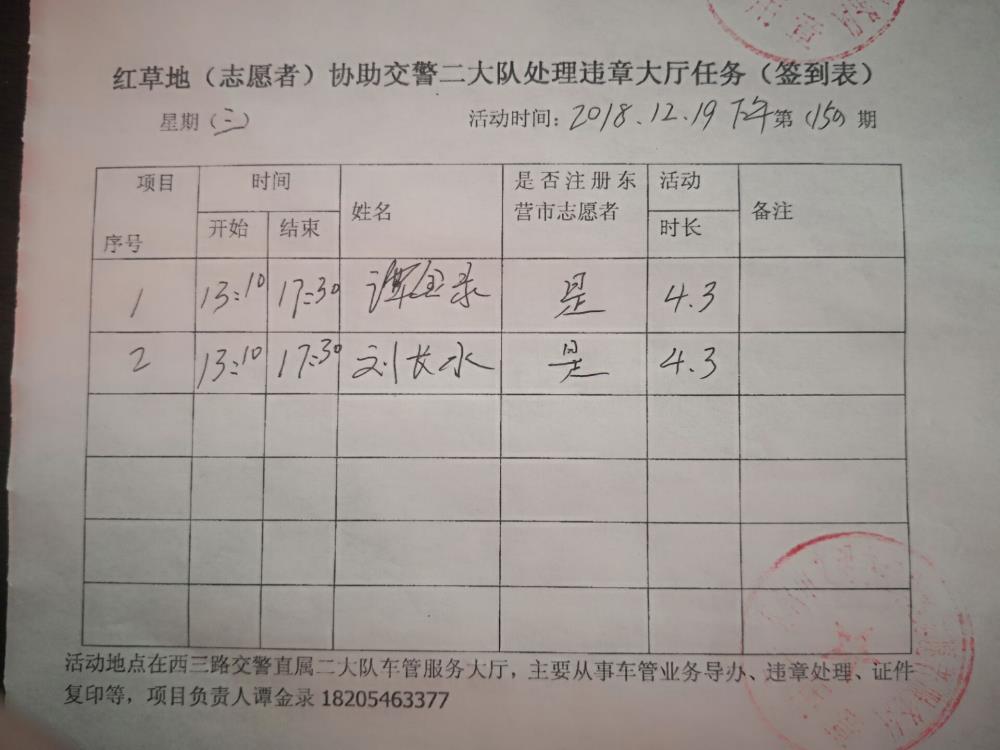 红草地（志愿者）协助交警二大队处理违章大厅任务（签到表）
星期（三） 活动时间：2018.12.19 下午 第（150）期
项目 时间 姓名 是否注册东营市志愿者 活动时长 备注
序号 开始 结束
1 13:10 17:30 谭金录 是 4.3
2 13:10 17:30 刘长水 是 4.3
活动地点在西三路交警直属二大队车管服务大厅，主要从事车管业务导办、违章处理、证件
复印等，项目负责人谭金录 18205463377